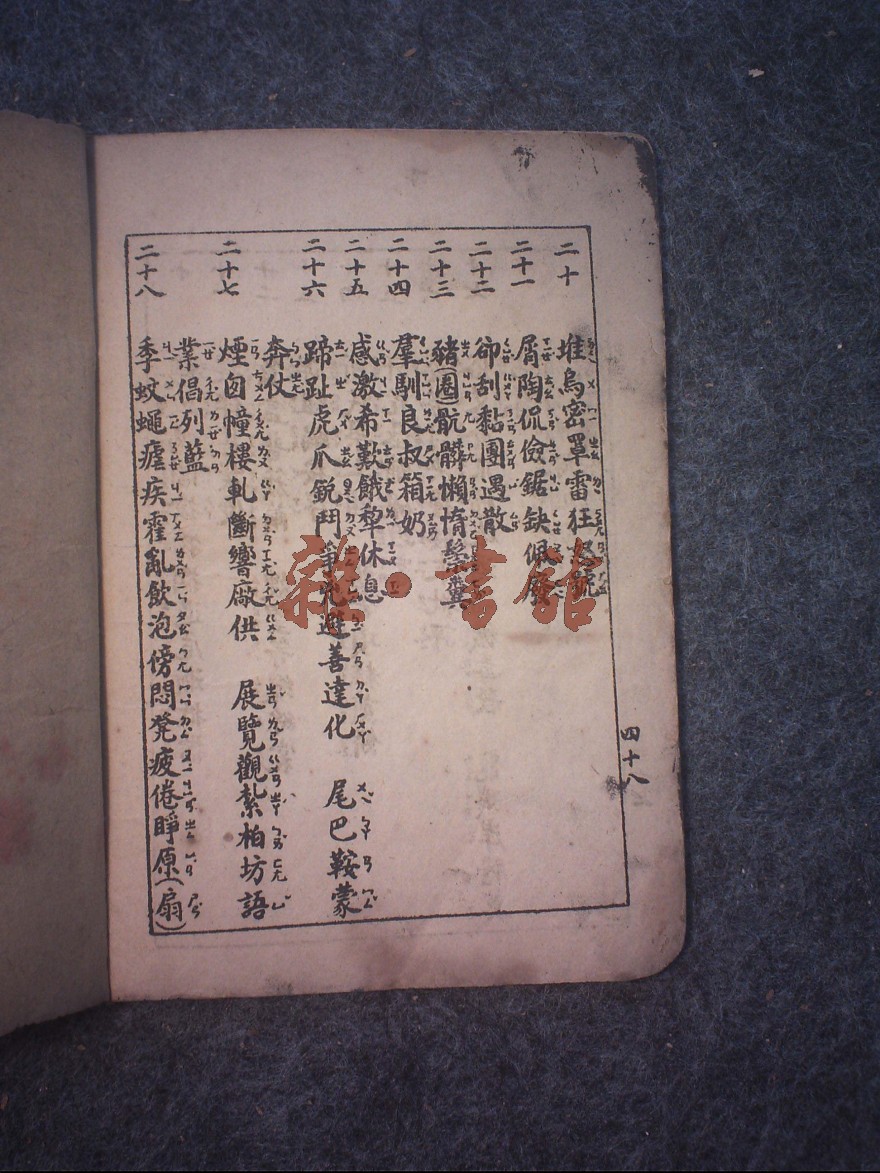 二十 堆烏密罩雷狂號
二十一 屑陶侃儉鋸缺佩
二十二 卻刮黏團遇散
二十三 豬(圈)骯髒懶惰鬆糞
二十四 羣馴良叔箱奶
二十五 感激希歎餓犂休息
二十六 蹄趾虎爪銳鬥爭避善達化 尾巴鞍蒙
奔仗
二十七 煙囪幢樓軋斷響廠供 展覽觀紮柏坊語
業倡列藍
二十八 季蚊蠅瘧疾霍亂飲泡傍悶凳疲倦睜原(扇)
四十八
雜·書館